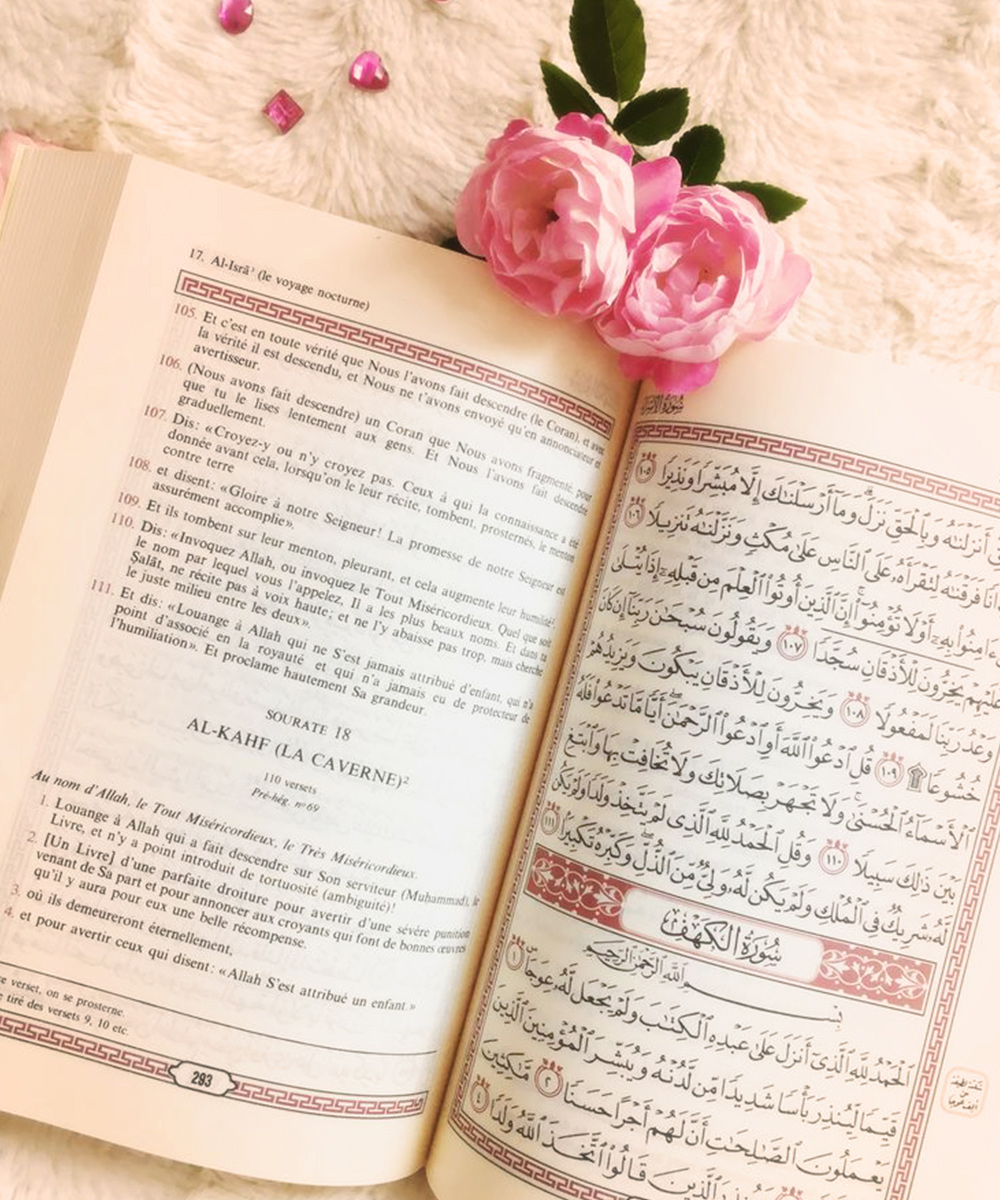 17. Al-Isrā' (le voyage nocturne)
105. Et c'est en toute vérité que Nous l'avons fait descendre (le Coran), et avec
la vérité il est descendu, et Nous ne t'avons envoyé qu'en annonciateur et
avertisseur.
106. (Nous avons fait descendre) un Coran que Nous avons fragmenté, pour
que tu le lises lentement aux gens. Et Nous l'avons fait descendre
graduellement.
107. Dis: «Croyez-y ou n'y croyez pas. Ceux à qui la connaissance a été
donnée avant cela, lorsqu'on le leur récite, tombent, prosternés, le menton
contre terre
108. et disent: «Gloire à notre Seigneur! La promesse de notre Seigneur est
assurément accomplie».
109. Et ils tombent sur leur menton, pleurant, et cela augmente leur humilité¹.
110. Dis: «Invoquez Allah, ou invoquez le Tout Miséricordieux. Quel que soit
le nom par lequel vous l'appelez, Il a les plus beaux noms. Et dans ta
Ṣalāt, ne récite pas à voix haute; et ne l'y abaisse pas trop, mais cherche
le juste milieu entre les deux».
111. Et dis: «Louange à Allah qui ne S'est jamais attribué d'enfant, qui n'a
point d'associé en la royauté et qui n'a jamais eu de protecteur de
l'humiliation». Et proclame hautement Sa grandeur.
SOURATE 18
AL-KAHF (LA CAVERNE)²
110 versets
Pré-hég. n° 69
Au nom d'Allah, le Tout Miséricordieux, le Très Miséricordieux.
1. Louange à Allah qui a fait descendre sur Son serviteur (Muḥammad), le
Livre, et n'y a point introduit de tortuosité (ambiguïté)!
2. [Un Livre] d'une parfaite droiture pour avertir d'une sévère punition
venant de Sa part et pour annoncer aux croyants qui font de bonnes œuvres
qu'il y aura pour eux une belle récompense.
3. où ils demeureront éternellement,
4. et pour avertir ceux qui disent: «Allah S'est attribué un enfant.»
verset, on se prosterne.
tiré des versets 9, 10 etc.
293
سُورَةُ الإِسْرَاءِ
أَنزَلْنَٰهُ وَبِٱلْحَقِّ نَزَلَ وَمَآ أَرْسَلْنَٰكَ إِلَّا مُبَشِّرًا وَنَذِيرًا ١٠٥
فَرَقْنَٰهُ لِتَقْرَأَهُۥ عَلَى ٱلنَّاسِ عَلَىٰ مُكْثٍ وَنَزَّلْنَٰهُ تَنزِيلًا ١٠٦
ءَامِنُوا۟ بِهِۦٓ أَوْ لَا تُؤْمِنُوٓا۟ إِنَّ ٱلَّذِينَ أُوتُوا۟ ٱلْعِلْمَ مِن قَبْلِهِۦٓ إِذَا يُتْلَىٰ
عَلَيْهِمْ يَخِرُّونَ لِلْأَذْقَانِ سُجَّدًا ١٠٧ وَيَقُولُونَ سُبْحَٰنَ رَبِّنَآ إِن كَانَ
وَعْدُ رَبِّنَا لَمَفْعُولًا ١٠٨ وَيَخِرُّونَ لِلْأَذْقَانِ يَبْكُونَ وَيَزِيدُهُمْ
خُشُوعًا ۩ ١٠٩ قُلِ ٱدْعُوا۟ ٱللَّهَ أَوِ ٱدْعُوا۟ ٱلرَّحْمَٰنَ أَيًّا مَّا تَدْعُوا۟ فَلَهُ
ٱلْأَسْمَآءُ ٱلْحُسْنَىٰ وَلَا تَجْهَرْ بِصَلَاتِكَ وَلَا تُخَافِتْ بِهَا وَٱبْتَغِ
بَيْنَ ذَٰلِكَ سَبِيلًا ١١٠ وَقُلِ ٱلْحَمْدُ لِلَّهِ ٱلَّذِى لَمْ يَتَّخِذْ وَلَدًا وَلَمْ يَكُن
لَّهُۥ شَرِيكٌ فِى ٱلْمُلْكِ وَلَمْ يَكُن لَّهُۥ وَلِىٌّ مِّنَ ٱلذُّلِّ وَكَبِّرْهُ تَكْبِيرًۢا ١١١
سُورَةُ الكَهْفِ
بِسْمِ ٱللَّهِ ٱلرَّحْمَٰنِ ٱلرَّحِيمِ
ٱلْحَمْدُ لِلَّهِ ٱلَّذِىٓ أَنزَلَ عَلَىٰ عَبْدِهِ ٱلْكِتَٰبَ وَلَمْ يَجْعَل لَّهُۥ عِوَجَاۜ ١
قَيِّمًا لِّيُنذِرَ بَأْسًا شَدِيدًا مِّن لَّدُنْهُ وَيُبَشِّرَ ٱلْمُؤْمِنِينَ ٱلَّذِينَ
يَعْمَلُونَ ٱلصَّٰلِحَٰتِ أَنَّ لَهُمْ أَجْرًا حَسَنًا ٢ مَّٰكِثِينَ
وَيُنذِرَ ٱلَّذِينَ قَالُوا۟ ٱتَّخَذَ ٱللَّهُ وَلَدًا ٤